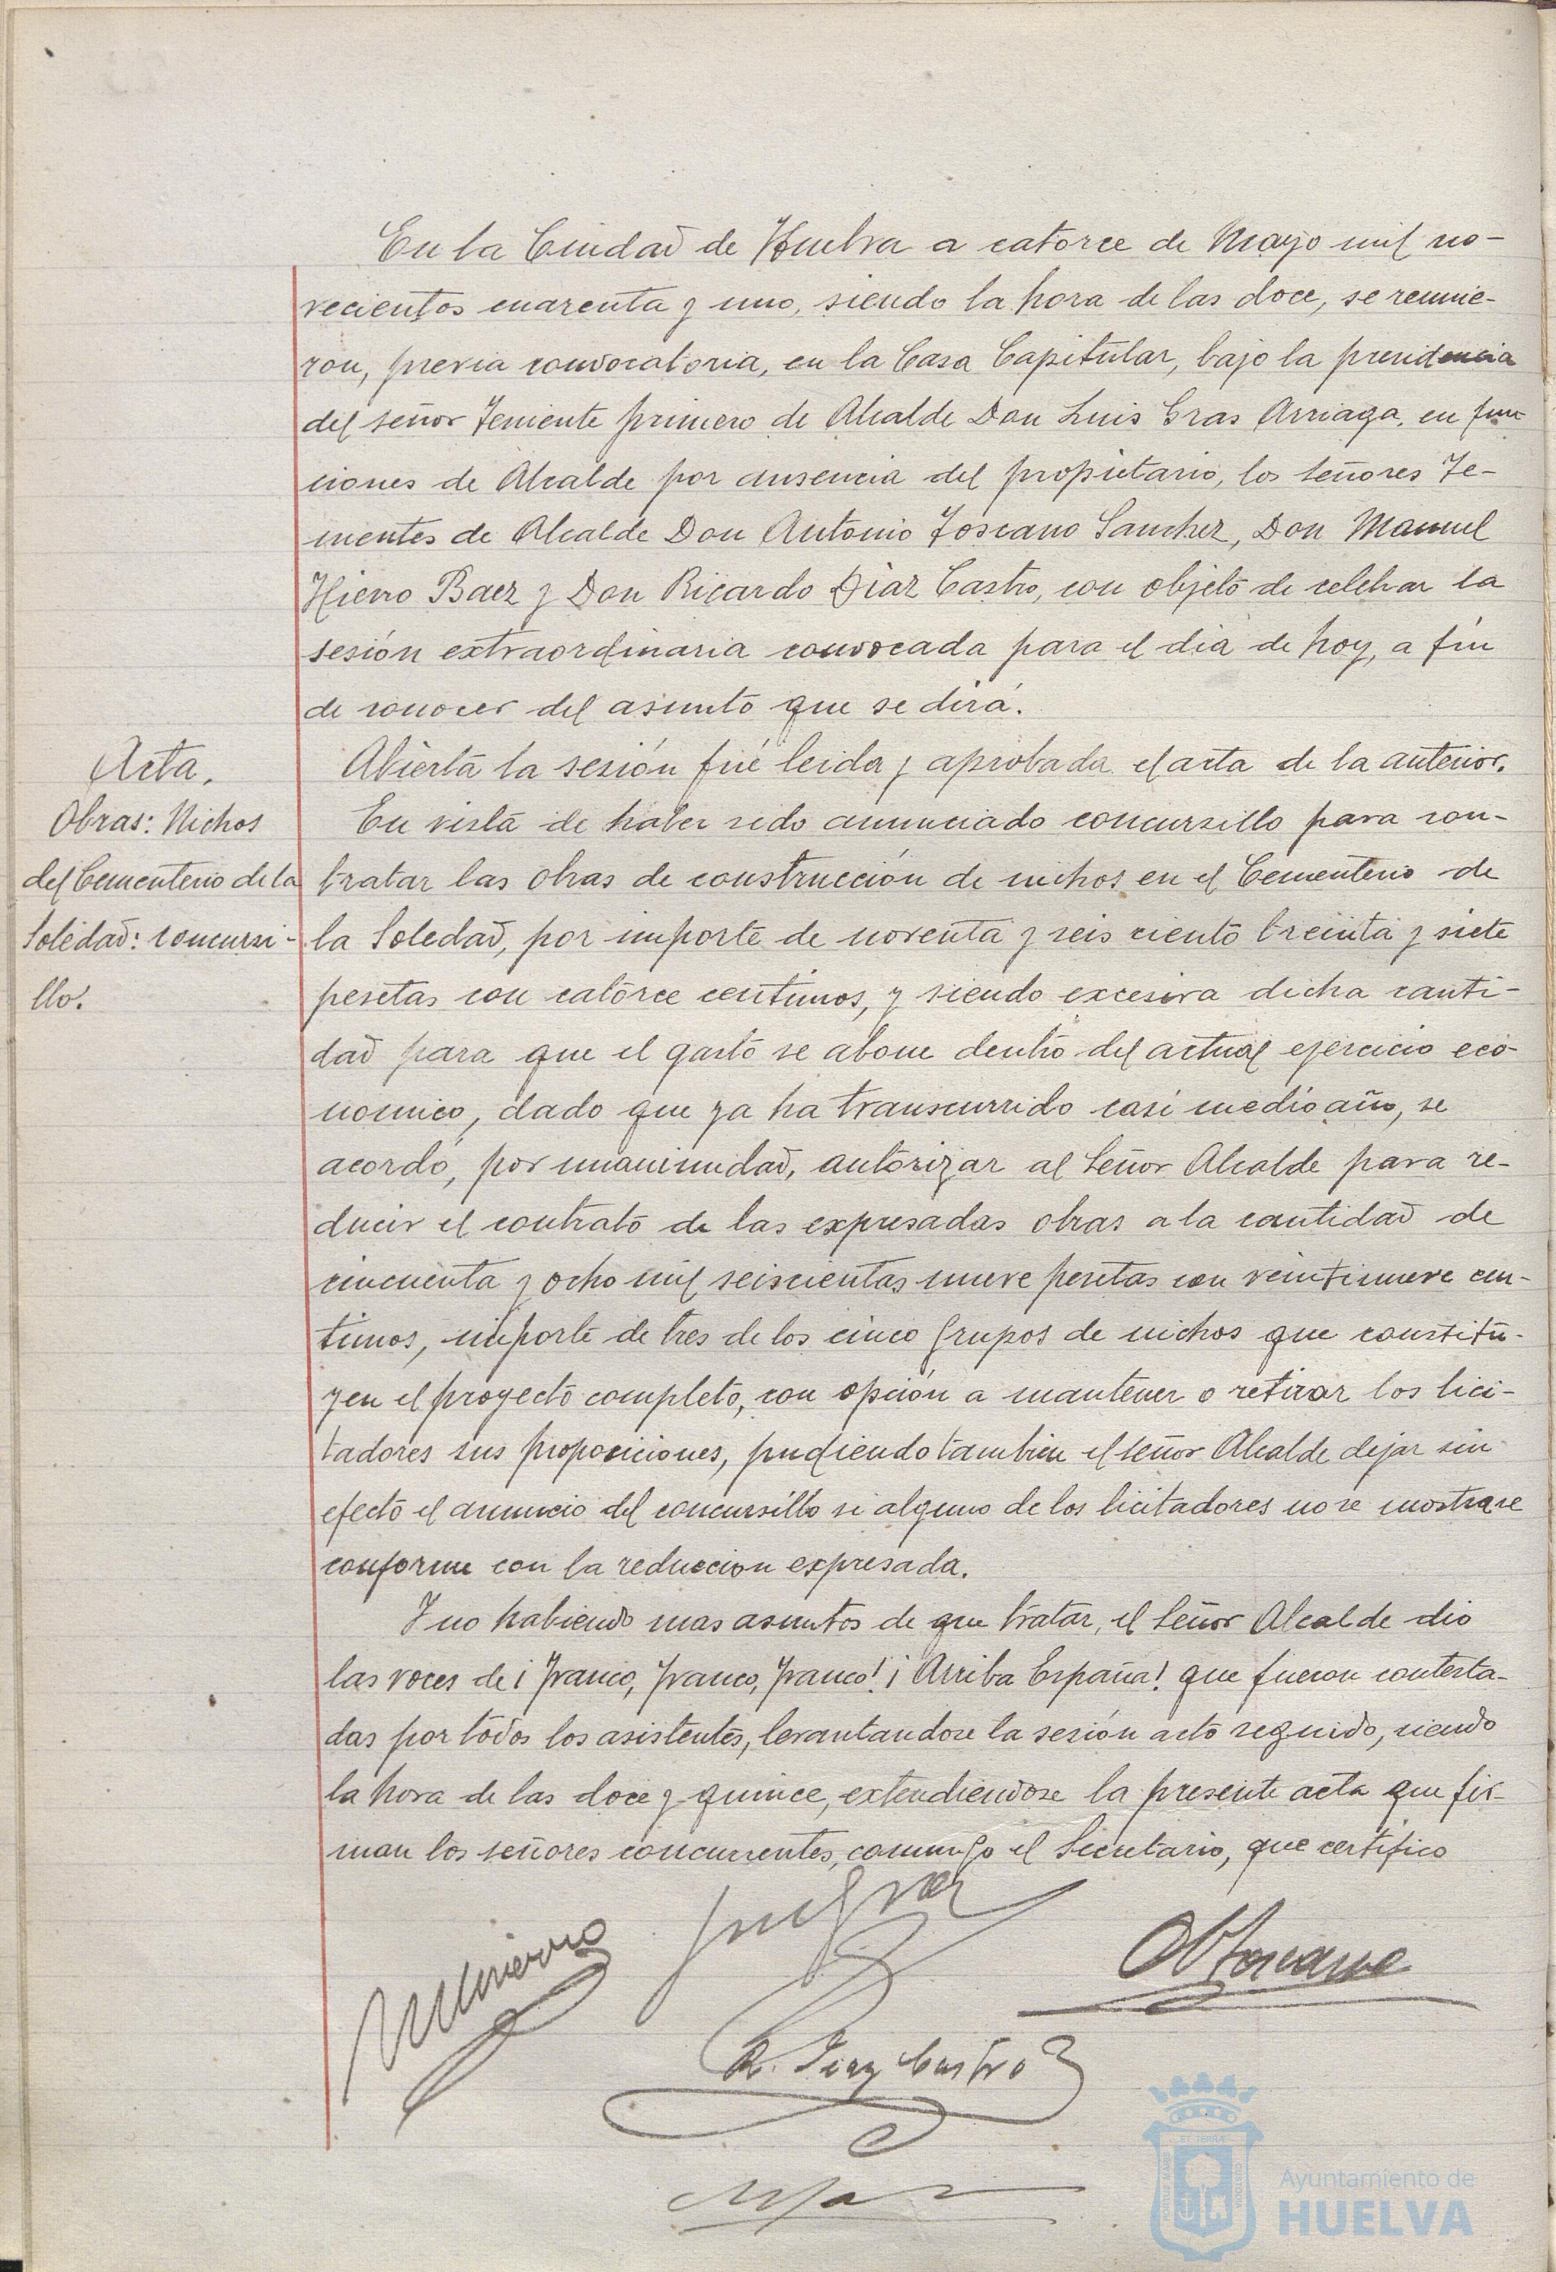 En la Ciudad de Huelva a catorce de Mayo mil no-
vecientos cuarenta y uno, siendo la hora de las doce, se reunie-
ron, previa convocatoria, en la Casa Capitular, bajo la presidencia
del señor Teniente primero de Alcalde Don Luis Gras Arriaga, en fun-
ciones de Alcalde por ausencia del propietario, los señores Te-
nientes de Alcalde Don Antonio Toscano Sanchez, Don Manuel
Hierro Baez y Don Ricardo Diaz Castro, con objeto de celebrar la
sesión extraordinaria convocada para el dia de hoy, a fin
de conocer del asunto que se dirá.
Acta.
Abierta la sesión fué leida y aprobada el acta de la anterior.
Obras: Nichos
del Cementerio de la
Soledad: concursi-
llo.
En vista de haber sido anunciado concursillo para con-
tratar las obras de construcción de nichos en el Cementerio de
la Soledad, por importe de noventa y seis ciento treinta y siete
pesetas con catorce centimos, y siendo excesiva dicha canti-
dad para que el gasto se abone dentro del actual ejercicio eco-
nomico, dado que ya ha transcurrido casi medio año, se
acordó, por unanimidad, autorizar al Señor Alcalde para re-
ducir el contrato de las expresadas obras a la cantidad de
cincuenta y ocho mil seiscientas nueve pesetas con veintinueve cen-
timos, importe de tres de los cinco grupos de nichos que constitu-
yen el proyecto completo, con opción a mantener o retirar los lici-
tadores sus proposiciones, pudiendo tambien el señor Alcalde dejar sin
efecto el anuncio del concursillo si alguno de los licitadores no se mostrase
conforme con la reduccion expresada.
Y no habiendo mas asuntos de que tratar, el Señor Alcalde dio
las voces de ¡Franco, Franco, Franco! ¡Arriba España! que fueron contesta-
das por todos los asistentes, levantandose la sesión acto seguido, siendo
la hora de las doce y quince, extendiendose la presente acta que fir-
man los señores concurrentes, conmigo el Secretario, que certifico
M Hierro
Luis Gras
A Toscano
R. Diaz Castro
Ayuntamiento de
HUELVA